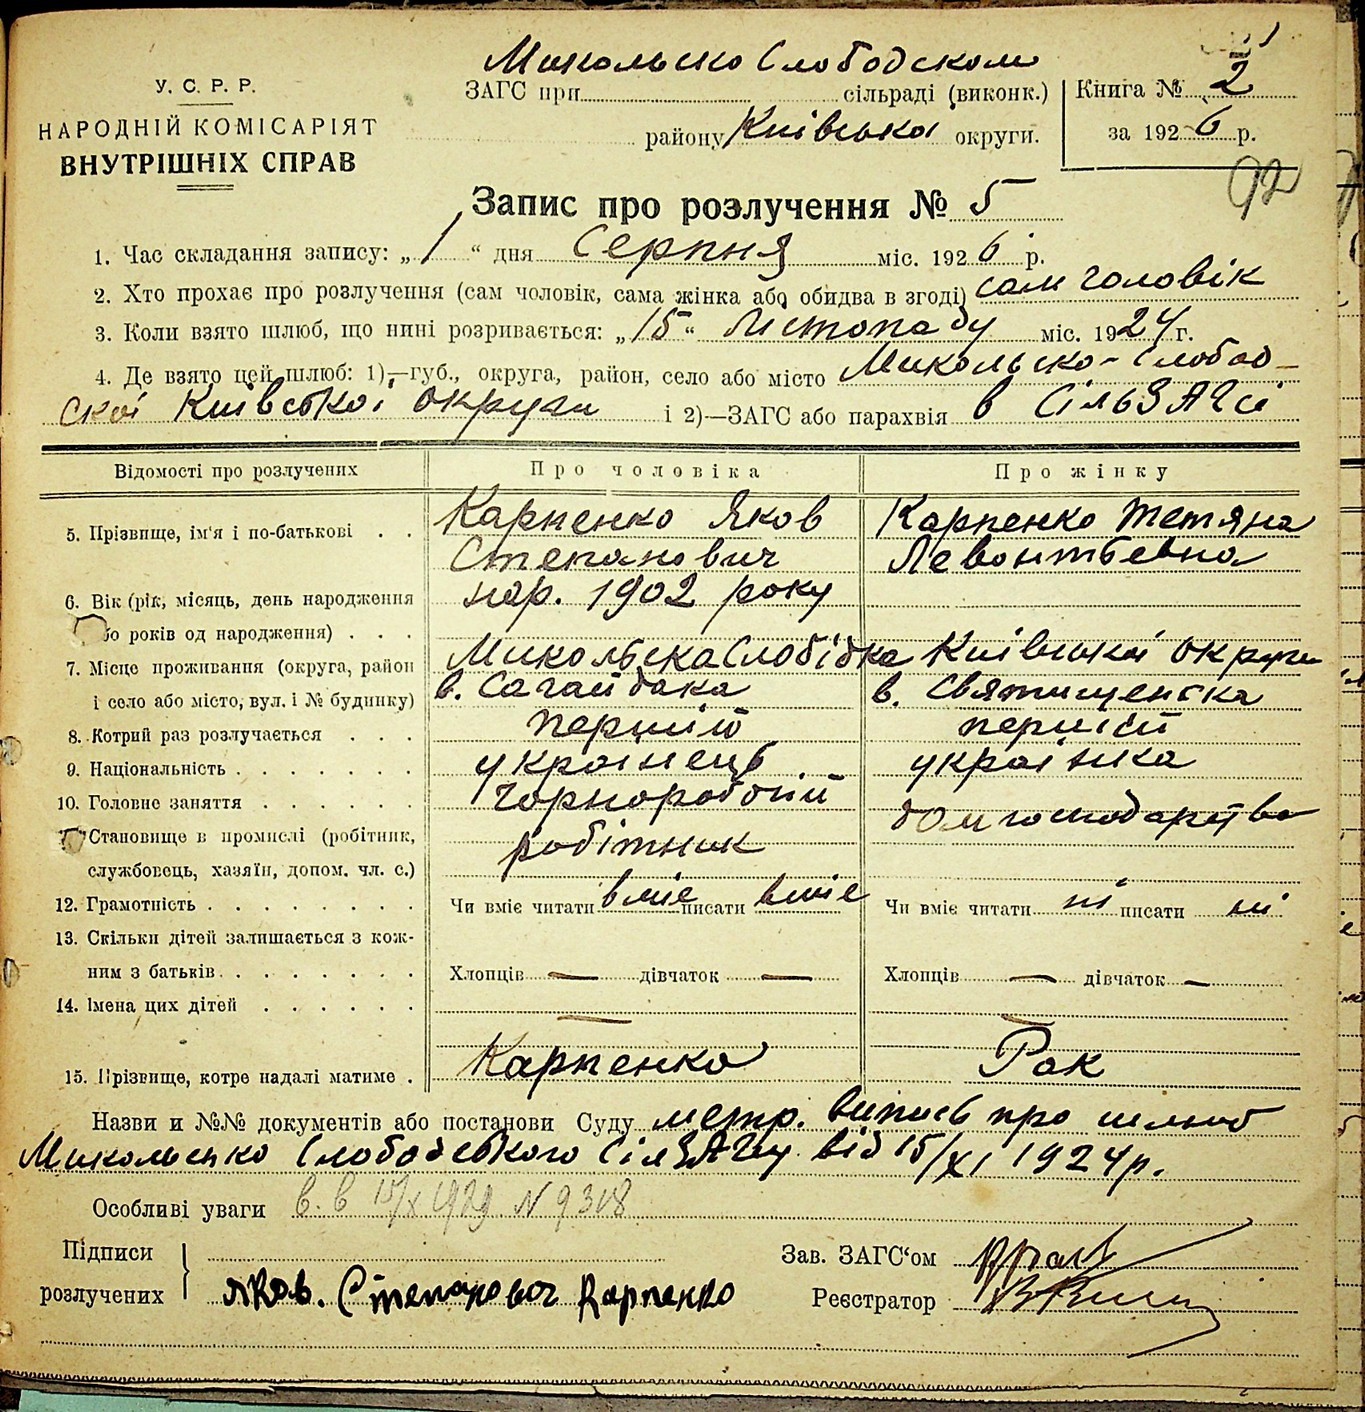 Микольско Слободском
У. С. Р. Р.
ЗАГС при сільраді (виконк.)
Книга № 2
НАРОДНІЙ КОМІСАРІЯТ
району Київськоі округи.
за 1926 р.
ВНУТРІШНІХ СПРАВ
92
Запис про розлучення № 5
1. Час складання запису: „ 1 “ дня Серпня міс. 1926 р.
2. Хто прохає про розлучення (сам чоловік, сама жінка або обидва в згоді) сам головік
3. Коли взято шлюб, що нині розривається: „ 15 “ Лістопаду міс. 1924 г.
4. Де взято цей шлюб: 1)—губ., округа, район, село або місто Микольско-Слобод-
скоі Київськоі округи і 2)—ЗАГС або парахвія в СільЗАГсі
Відомості про розлучених Про чоловіка Про жінку
5. Прізвище, ім'я і по-батькові . . Карпенко Яков Карпенко Тетяна
Степанович Левонтьевна
6. Вік (рік, місяць, день народження нар. 1902 року
бо років од народження) . . .
7. Місце проживання (округа, район Микольска Слобідка Київськоі округи
і село або місто, вул. і № будинку) в. Сагайдака в. Святищенска
8. Котрий раз розлучається . . . перший перший
9. Національність . . . . . . . украінець украінка
10. Головне заняття . . . . . . чорноробочий домгосподарство
Становище в промислі (робітник,
службовець, хазяїн, допом. чл. с.) робітник
12. Грамотність . . . . . . . . Чи вміє читати вміє писати вміє Чи вміє читати ні писати ні
13. Скільки дітей залишається з кож-
ним з батьків . . . . . . . Хлопців — дівчаток — Хлопців — дівчаток —
14. Імена цих дітей . . . . . . — —
15. Прізвище, котре надалі матиме . Карпенко Рак
Назви и №№ документів або постанови Суду метр. випись про шлюб
Микольсько Слободського СілЗАГу від 15/XI 1924 р.
Особливі уваги в. в 15/X 1929 N 9308
Підписи
розлучених
Яков. Степанович Карпенко
Зав. ЗАГС‘ом
Реєстратор